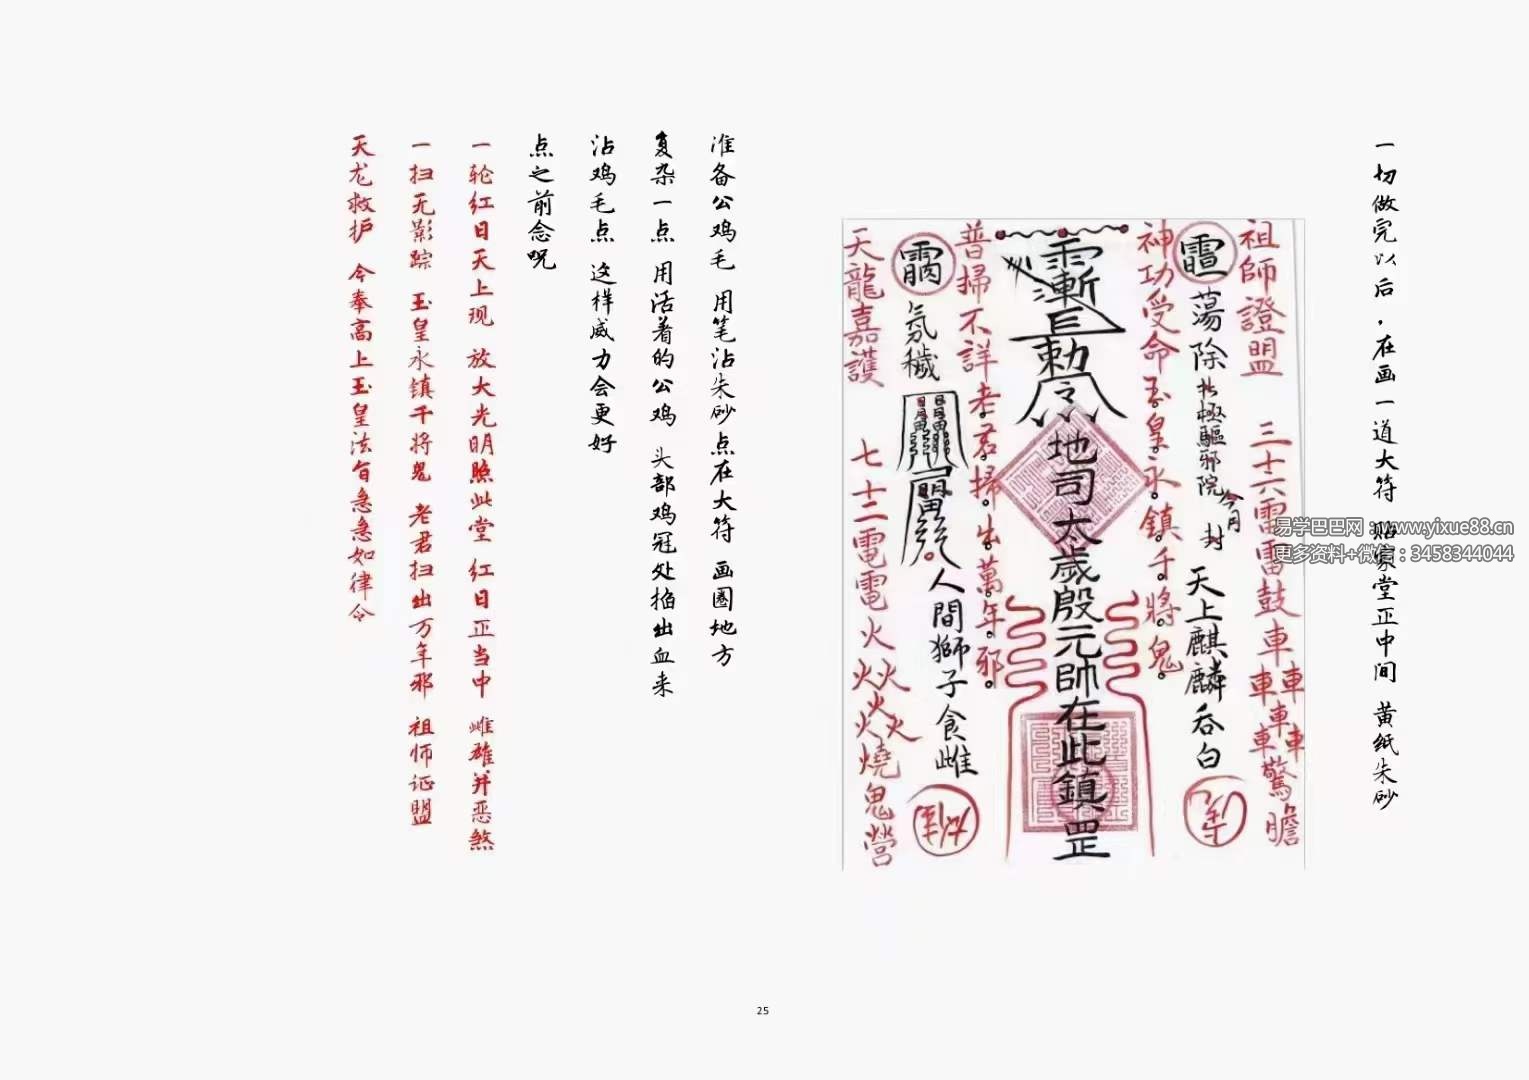 一切做完以后，在画一道大符 贴家堂正中间 黄纸朱砂
祖師證盟 三十六雷雷鼓車車車車車車驚膽
蕩除北極驅邪院 今月 封 天上麒麟吞白
神功受命玉皇永鎮千將鬼
勅令地司太歲殷元帥在此鎮罡
普掃不詳老君掃出萬年邪
氛穢 人間獅子食雌
天龍嘉護 七十二電電火火火火火火燒鬼營
准备公鸡毛 用笔沾朱砂点在大符 画圈地方
复杂一点 用活着的公鸡 头部鸡冠处掐出血来
沾鸡毛点 这样威力会更好
点之前念咒
一轮红日天上现 放大光明照此堂 红日正当中 雌雄并恶煞
一扫无影踪 玉皇永镇千将鬼 老君扫出万年邪 祖师证盟
天龙救护 今奉高上玉皇法旨急急如律令
易学巴巴网：www.yixue88.cn
更多资料+微信：3458344044
25